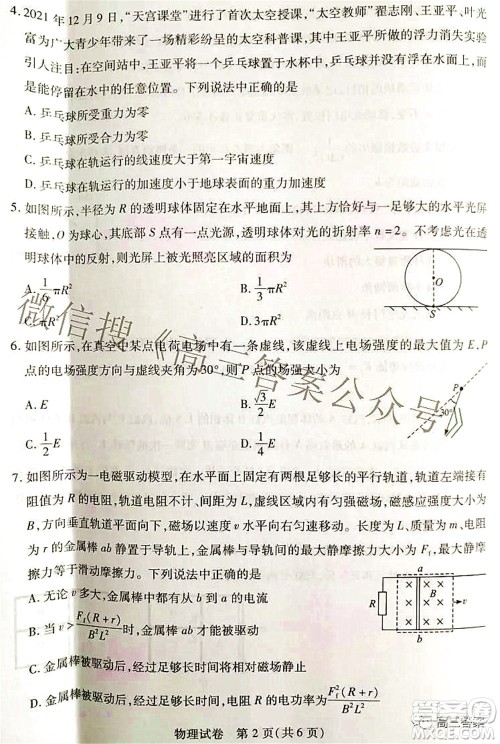 4. 2021 年 12 月 9 日，“天宫课堂”进行了首次太空授课，“太空教师”翟志刚、王亚平、叶光
富为广大青少年带来了一场精彩纷呈的太空科普课，其中，王亚平的乒乓球浮力消失实验
引人注目：在空间站中，王亚平将一个乒乓球置于水杯中，在忽略空气阻力时，乒乓球能
停留在水中的任意位置。下列说法中正确的是
A. 乒乓球所受重力为零
B. 乒乓球所受合力为零
C. 乒乓球在轨运行的线速度大于第一宇宙速度
D. 乒乓球在轨运行的加速度小于地球表面的重力加速度
5. 如图所示，半径为 R 的透明球体固定在水平地面上，其上方恰好与一足够大的水平光屏
接触，O 为球心，其底部 S 点有一点光源，透明球体对光的折射率 n=2。不考虑光在透
明球体中的反射，则光屏上被光照亮区域的面积为
A. πR²
B. 1/3 πR²
C. √3πR²
D. 3πR²
S
O
S
6. 如图所示，在真空中某点电荷电场中有一条虚线，该虚线上电场强度的最大值为 E，P
点的电场强度方向与虚线夹角为30°，则 P 点的场强大小为
A. E
B. √3/2 E
C. 1/2 E
D. 1/4 E
P
30°
7. 如图所示为一电磁驱动模型，在水平面上固定有两根足够长的平行轨道，轨道左端接有
阻值为 R 的电阻，轨道电阻不计、间距为 L，虚线区域内有匀强磁场，磁感应强度大小为
B，方向垂直轨道平面向下，磁场以速度 v 水平向右匀速移动。长度为 L、电阻为
r 的金属棒 ab 静置于导轨上，金属棒与导轨间的最大静摩擦力大小为 Ff，最大静摩擦力
等于滑动摩擦力。下列说法中正确的是
A. 无论 v 多大，金属棒 ab 中总有从 b 到 a 的电流
B. 当 v>Ff(R+r)/B²L² 时，金属棒 ab 才能被驱动
C. 金属棒被驱动后，经过足够长时间将相对磁场静止
D. 金属棒被驱动后，经过足够长时间，回路消耗的总功率为 Ff²(R+r)/B²L²
R
a
B
b
v
物理试卷 第 2 页（共 6 页）
微信搜《高三答案公众号》
高三答案